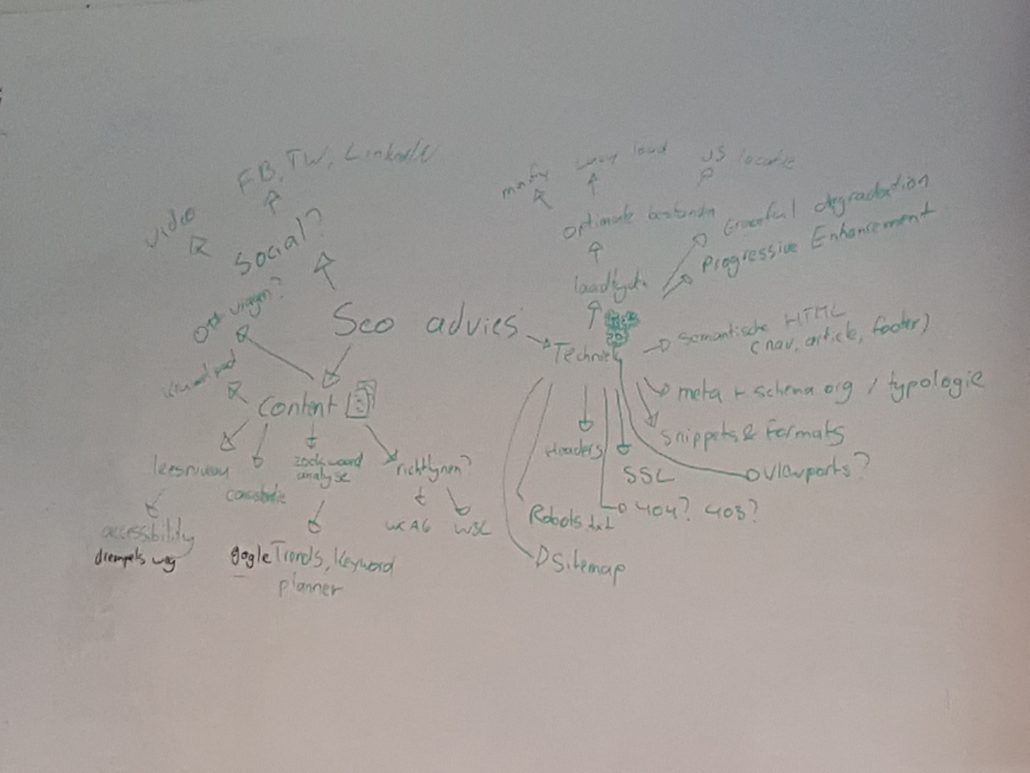 FB, TW, LinkedIN
video
Social?
lazy load
JS locatie
Graceful degradation
Progressive Enhancement
Seo advies
Techniek
Semantische HTML
(nav, article, footer)
meta + schema org / typologie
snippets & formats
viewports?
Headers
SSL
404? 403?
Robots.txt
Sitemap
Content
leesniveau
zoekwoord
analyse
richtlijnen?
WCAG
W3C
accessibility
drempels weg
gogle Trends, Keyword
planner